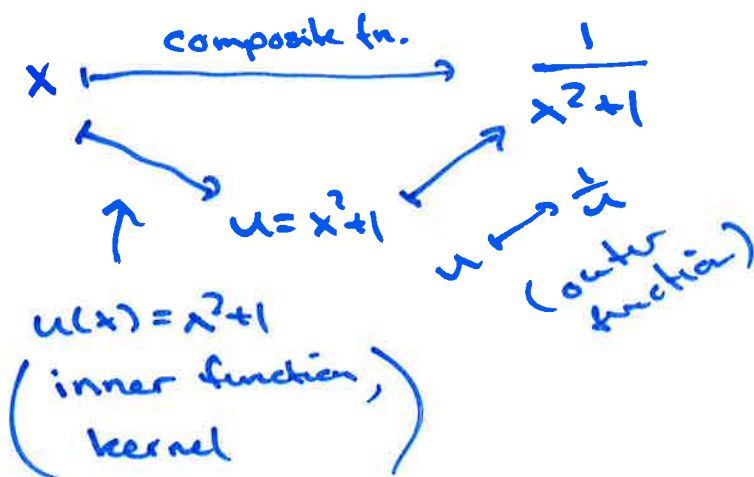 composite fn.
x ↦ 1/(x²+1)
u = x²+1
u ↦ 1/u
(outer
function)
u(x) = x²+1
(inner function,
kernel)